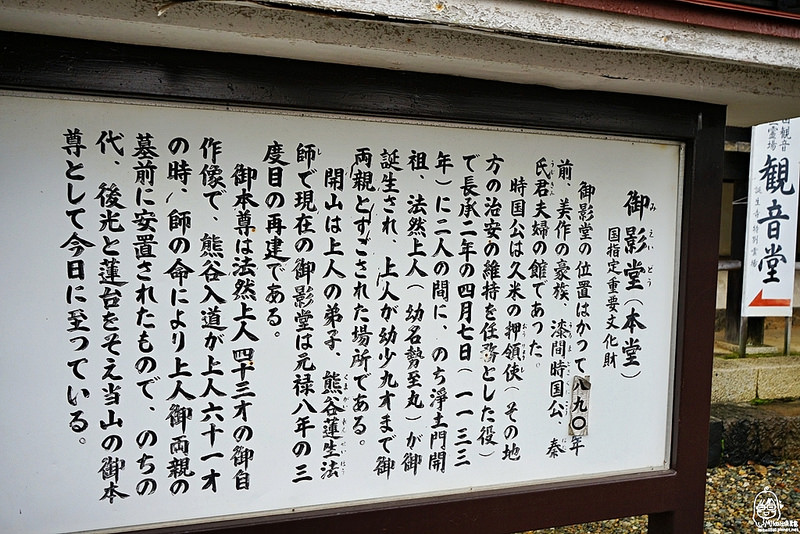 御影堂(本堂)
みえいどう
国指定重要文化財
御影堂の位置はかつて八九〇年
前、美作の豪族、漆間時国公、秦
氏君夫婦の館であった。
時国公は久米の押領使(その地
方の治安の維持を任務とした役)
で長承二年の四月七日(一一三三
年)に二人の間に、のち浄土門開
祖、法然上人(幼名勢至丸)が御
誕生され、上人が幼少九才まで御
両親とすごされた場所である。
開山は上人の弟子、熊谷蓮生法
師で現在の御影堂は元禄八年の三
度目の再建である。
御本尊は法然上人四十三才の御自
作像で、熊谷入道が上人六十一才
の時、師の命により上人御両親の
墓前に安置されたもので、のちの
代、後光と蓮台をそえ当山の御本
尊として今日に至っている。
観音
霊場
観音堂
誕生寺特別霊場